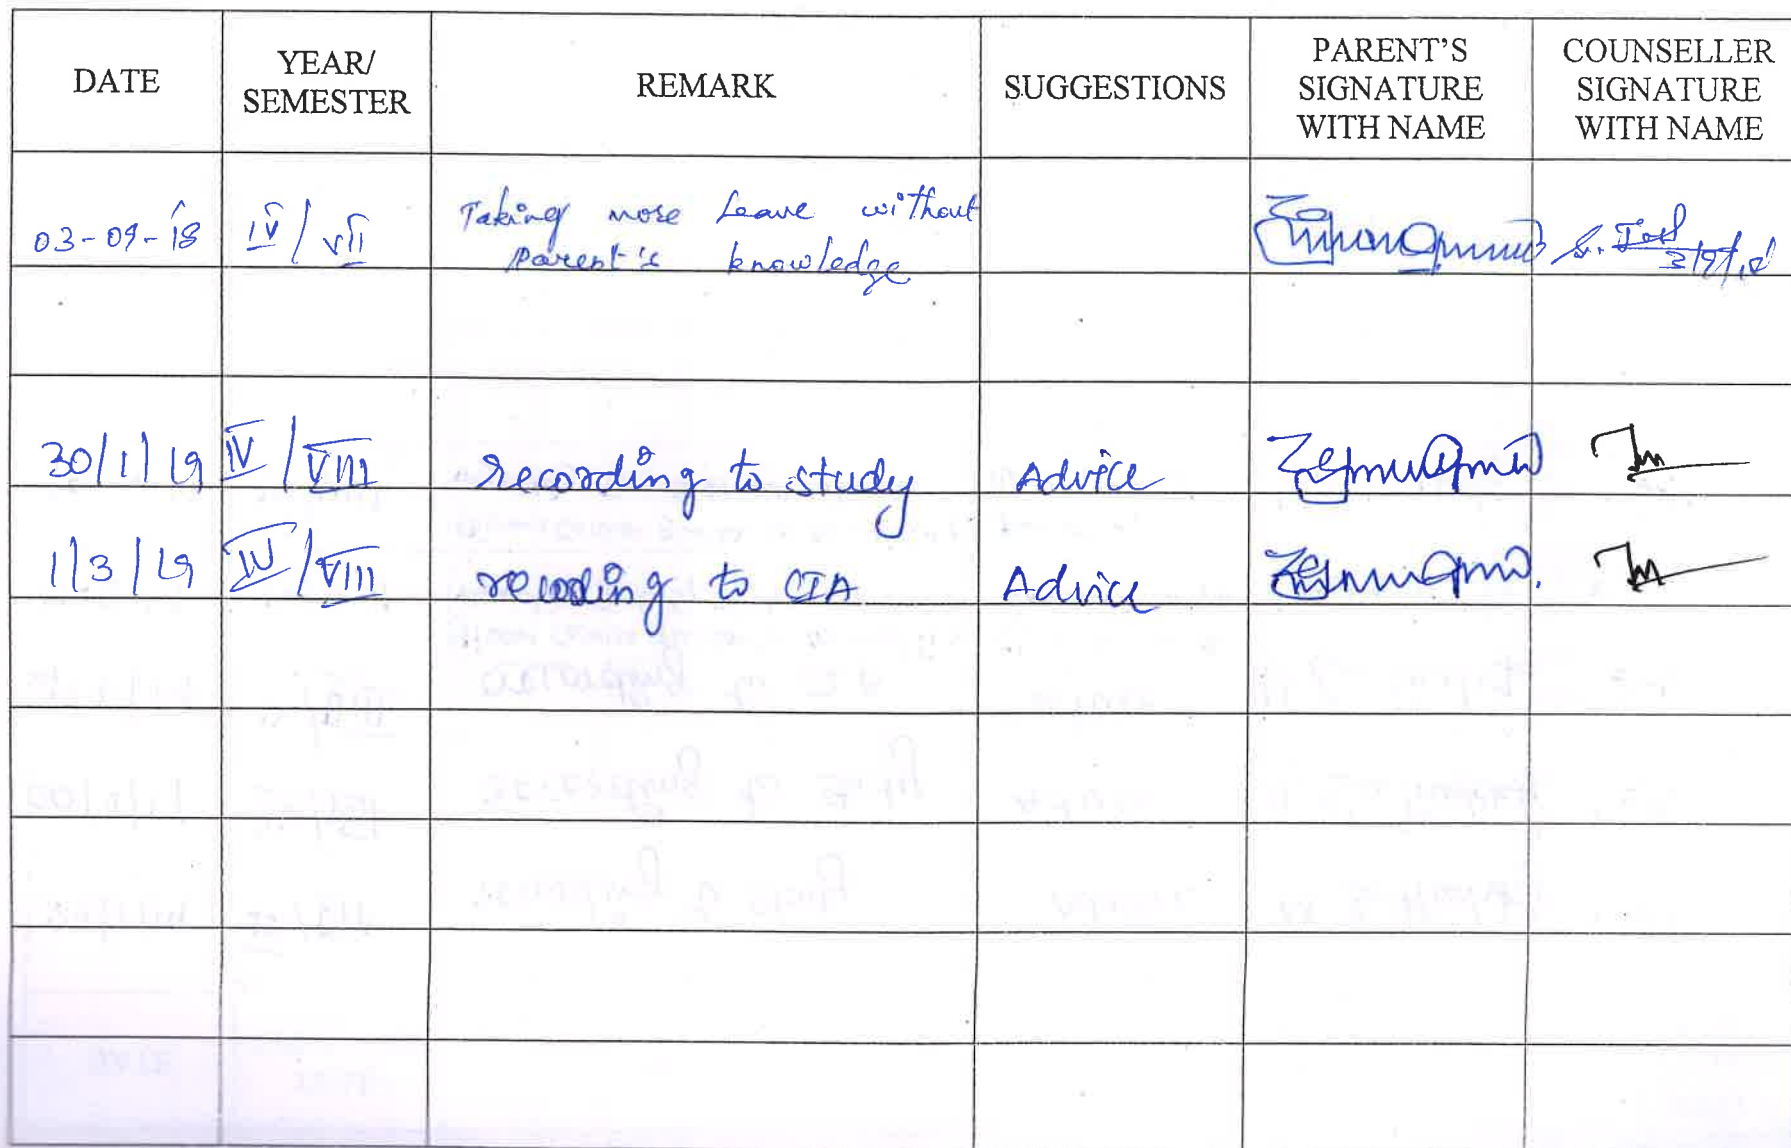 DATE
YEAR/
SEMESTER
REMARK
SUGGESTIONS
PARENT'S
SIGNATURE
WITH NAME
COUNSELLER
SIGNATURE
WITH NAME
03-09-18
IV / VII
Taking more Leave without
parent's knowledge
3/9/18
30/1/19 IV / VIII recording to study Advice
1/3/19 IV / VIII recording to CIA Advice